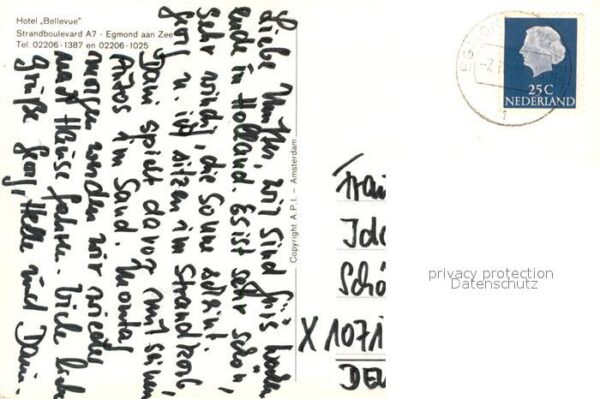 Hotel „Bellevue"
Strandboulevard A7 - Egmond aan Zee
Tel. 02206-1387 en 02206-1025
Liebe wir sind fürs Wochen
ende in Holland. Es ist sehr schön,
sehr windig, die Sonne scheint.
Georg u. ich sitzen im Strandkorb
Dani spielt davor mit seinen
Autos im Sand. Montag
morgen werden wir wieder
nach Hause fahren. Viele liebe
Grüße Georg, Helle und Dani.
Copyright A.P.I. - Amsterdam
25C
NEDERLAND
Frau
Ida
Schö
X 1071
DE
privacy protection
Datenschutz